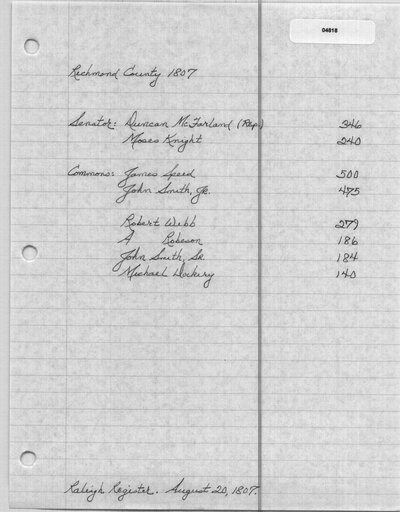 04818
Richmond County 1807
Senator: Duncan McFarland (Rep.) 346
Moses Knight 240
Commons: James Speed 500
John Smith, Jr. 475
Robert Webb 279
A Robeson 186
John Smith, Sr. 184
Michael Dockery 140
Raleigh Register. August 20, 1807.